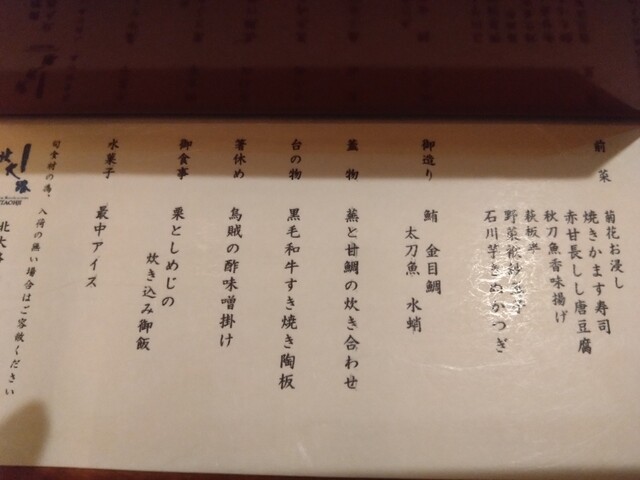 前菜
菊花お浸し
焼きかます寿司
赤甘長しし唐豆腐
秋刀魚香味揚げ
石川芋きぬかつぎ
御造り
鮪 金目鯛
太刀魚 水蛸
蓋物
蕪と甘鯛の炊き合わせ
台の物
黒毛和牛すき焼き陶板
箸休め
烏賊の酢味噌掛け
御食事
栗としめじの
炊き込み御飯
水菓子
最中アイス
旬食材の為、入荷の無い場合はご容赦ください